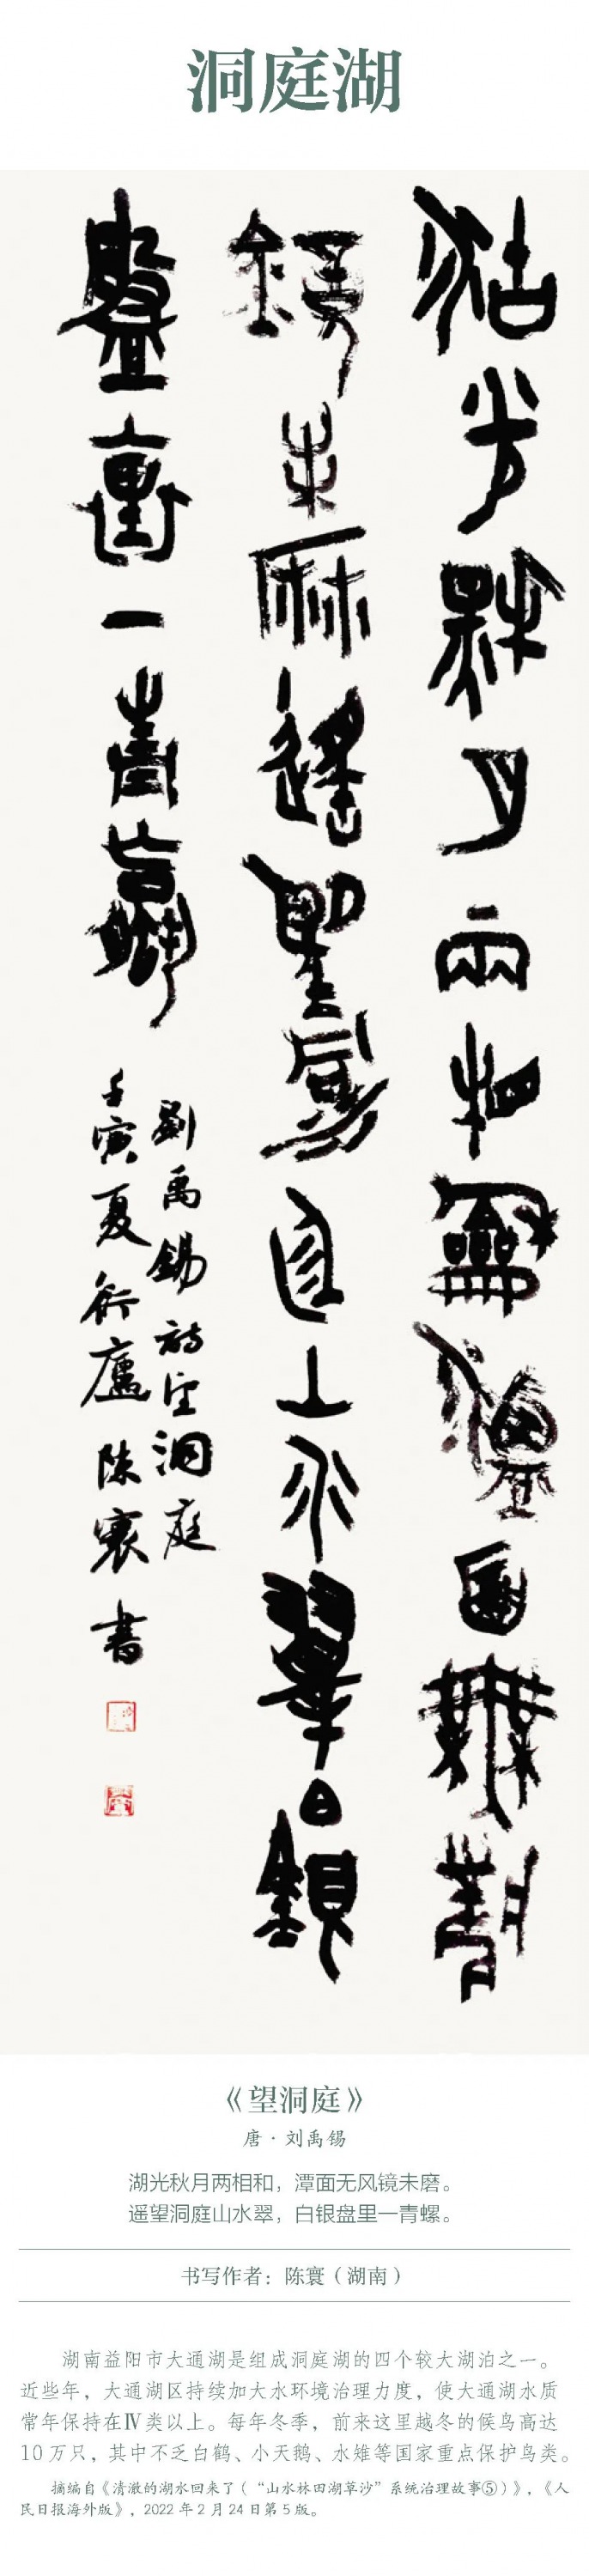 洞庭湖
湖光秋月两相龢潭面無风
鏡未磨遥望洞庭山水翠白銀
盤裏一青螺
劉禹錫诗望洞庭
壬寅夏衍廬陈寰书
《望洞庭》
唐·刘禹锡
湖光秋月两相和，潭面无风镜未磨。
遥望洞庭山水翠，白银盘里一青螺。
书写作者：陈寰（湖南）
湖南益阳市大通湖是组成洞庭湖的四个较大湖泊之一。
近些年，大通湖区持续加大水环境治理力度，使大通湖水质
常年保持在Ⅳ类以上。每年冬季，前来这里越冬的候鸟高达
10万只，其中不乏白鹤、小天鹅、水雉等国家重点保护鸟类。
摘编自《清澈的湖水回来了（“山水林田湖草沙”系统治理故事⑤）》，《人
民日报海外版》，2022年2月24日第5版。